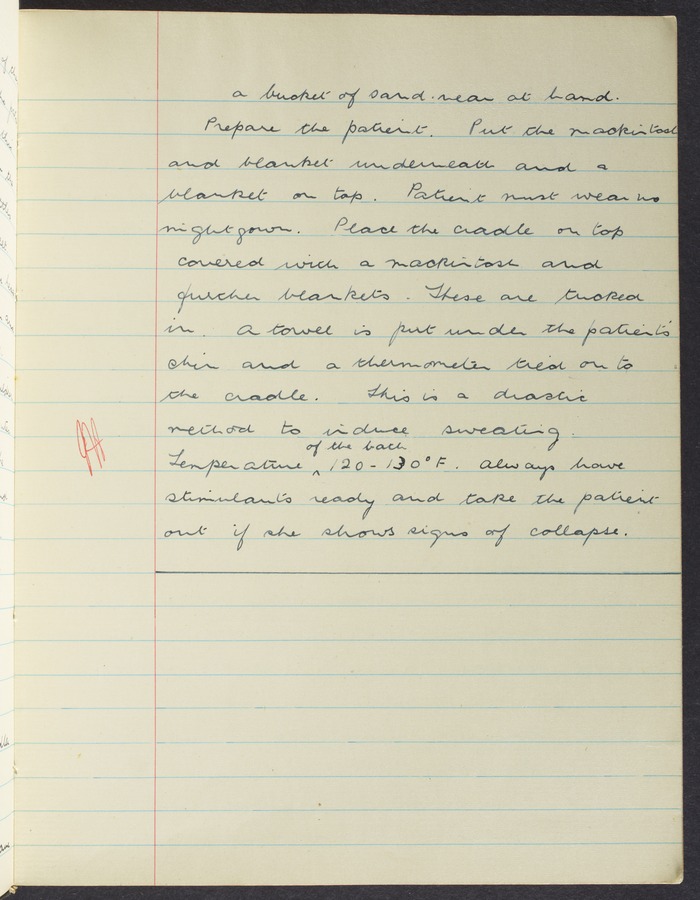 a bucket of sand near at hand.
Prepare the patient. Put the mackintosh
and blanket underneath and a
blanket on top. Patient must wear no
nightgown. Place the cradle on top
covered with a mackintosh and
further blankets. These are tucked
in. A towel is put under the patient's
chin and a thermometer tied on to
the cradle. This is a drastic
method to induce sweating.
of the bath
Temperature ^ 120-130°F. Always have
stimulants ready and take the patient
out if she shows signs of collapse.